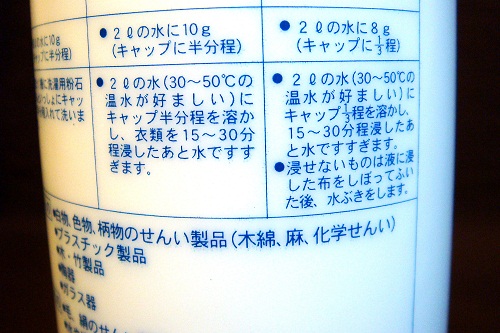 の水に10g
ャップに半分程)
●2ℓの水に10g
(キャップに半分程)
●2ℓの水に8g
(キャップに⅓程)
に洗濯用粉石
しょにキャッ
入れて洗いま
●2ℓの水(30～50℃の
温水が好ましい)に
キャップ半分程を溶か
し、衣類を15～30分
程浸したあと水ですす
ぎます。
●2ℓの水(30～50℃の
温水が好ましい)に
キャップ⅓程を溶かし、
15～30分程浸したあ
と水ですすぎます。
●浸せないものは液に浸
した布をしぼってふい
た後、水ぶきをします。
白物、色物、柄物のせんい製品(木綿、麻、化学せんい)
●プラスチック製品
●木・竹製品
器
ガラス器
、絹のせん